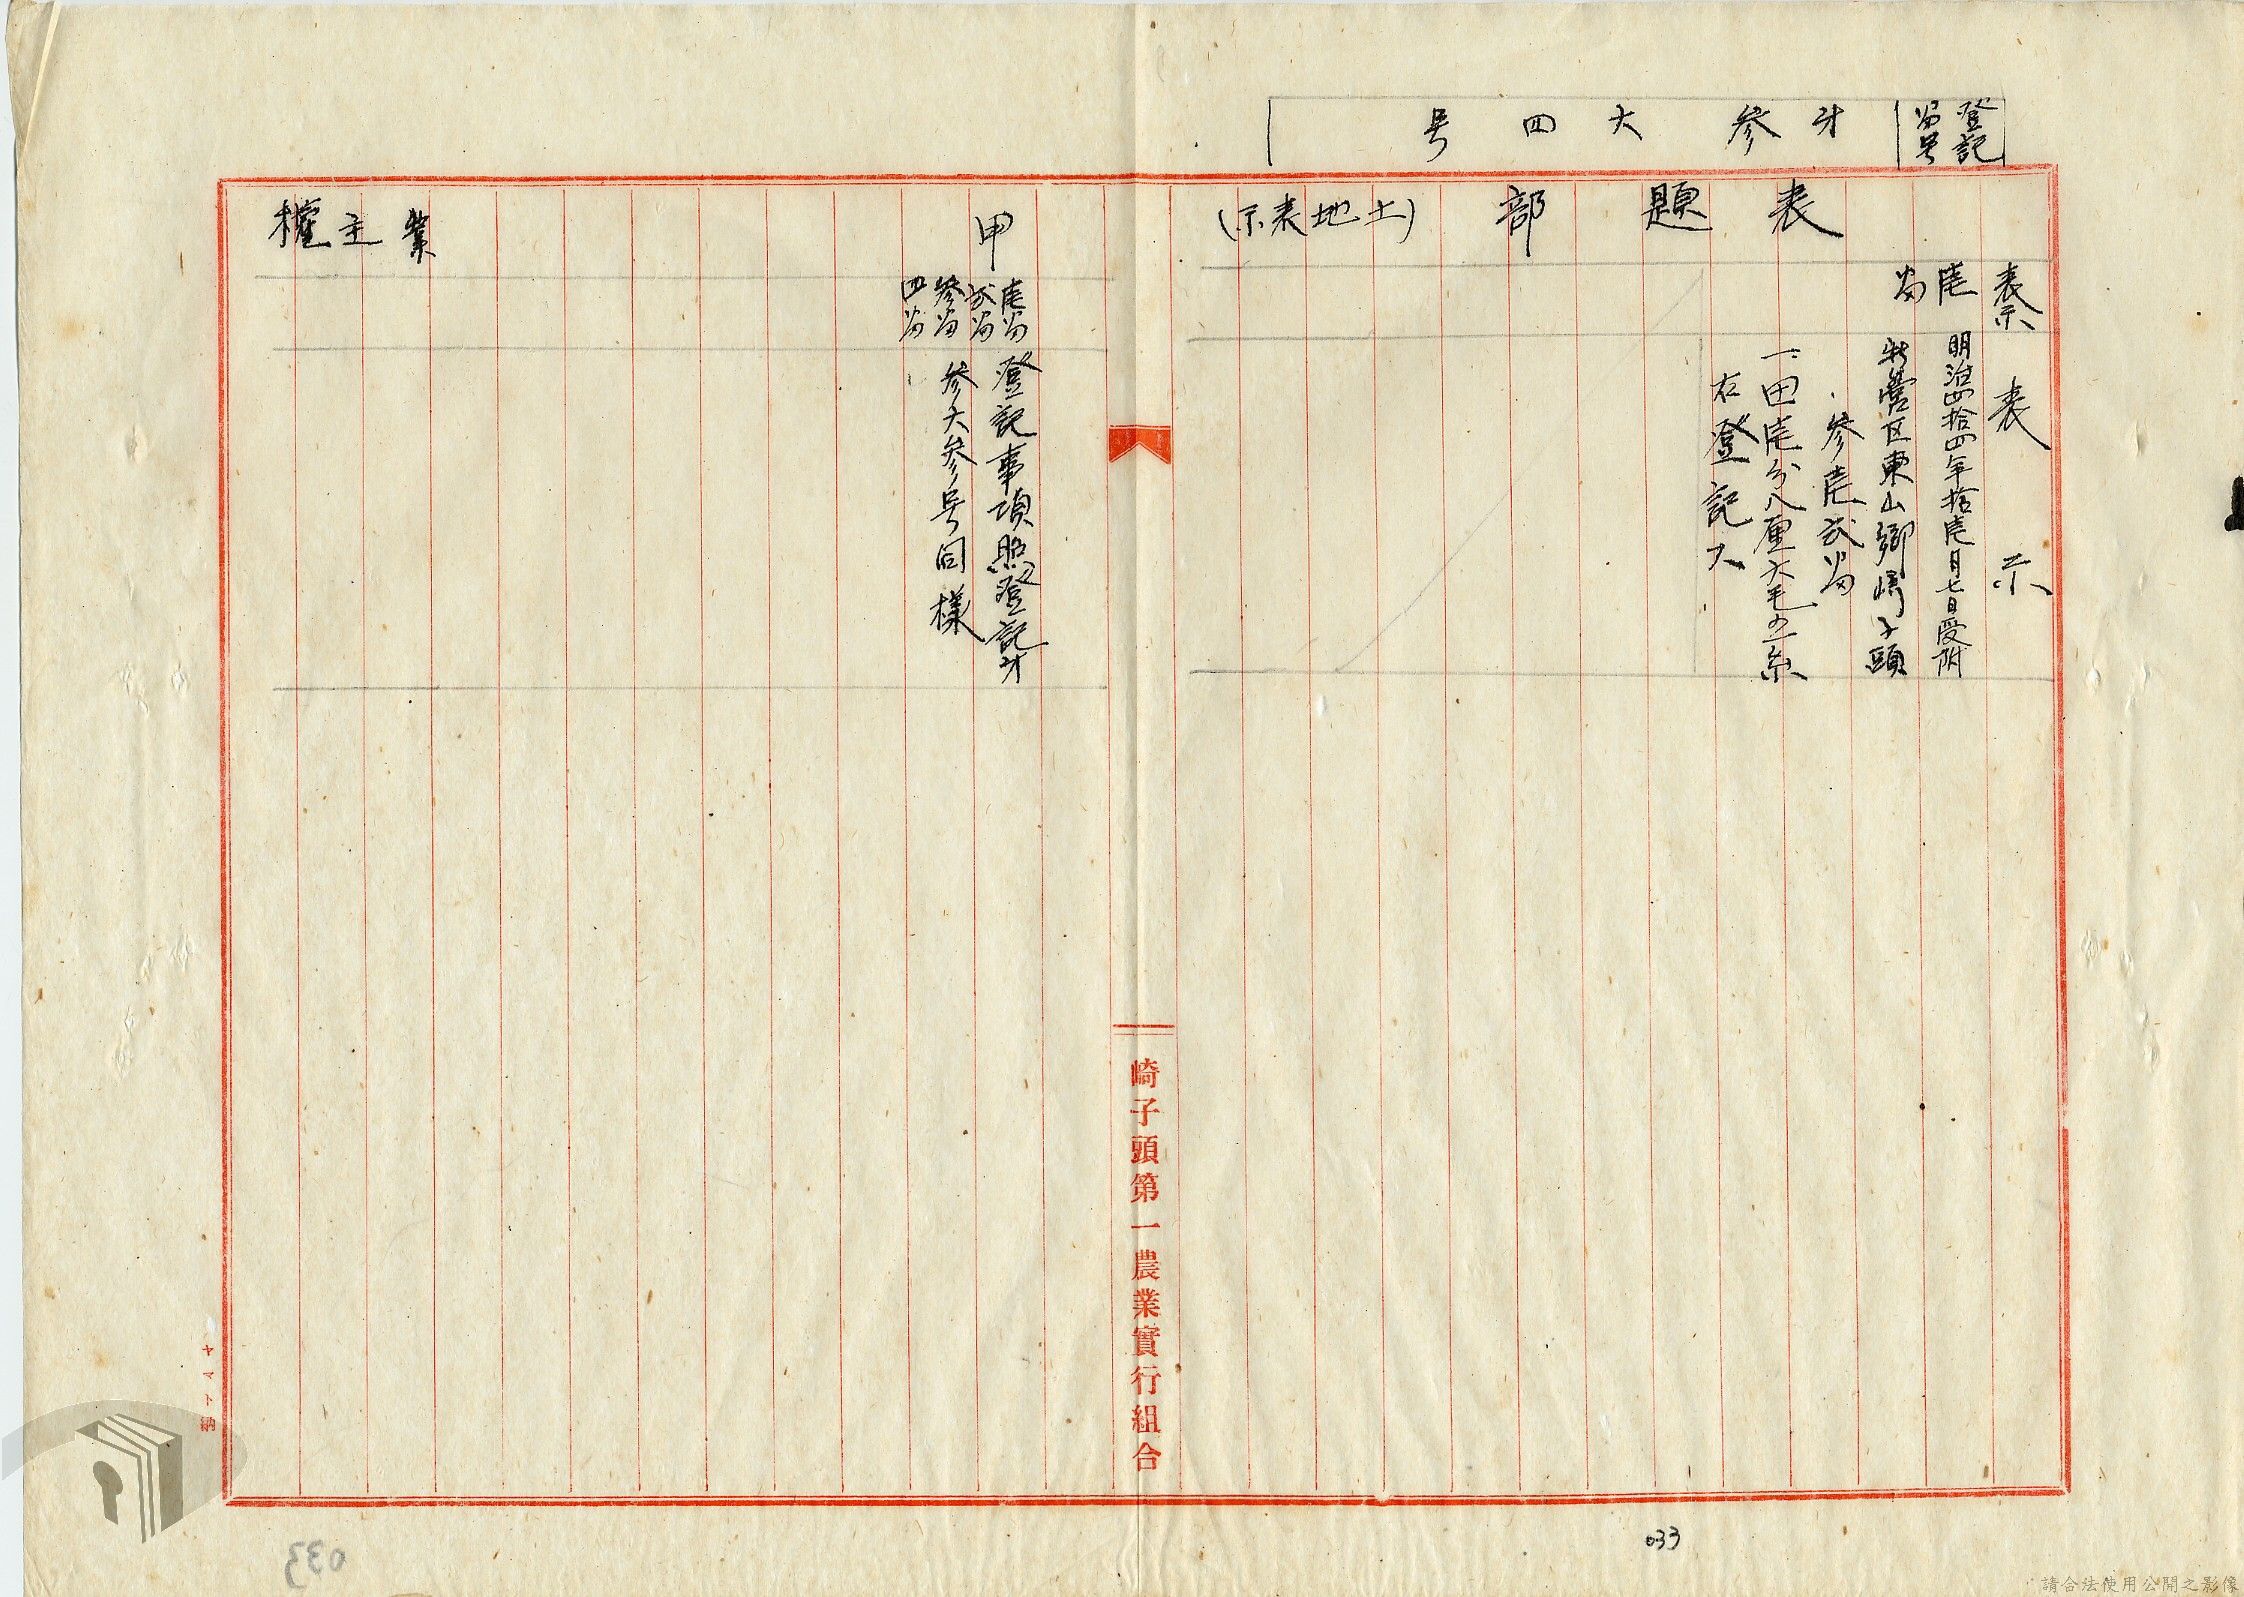 登記
番号
才参六四号
表題部
(土地表示)
表示
壱
番
表示
明治四拾四年拾壱月七日受附
新營区東山鄉崎子頭
参壱弍番
一、田壱分八厘六毛
右登記ス
甲
壱番
弍番
参番
四番
登記事項照登記才
参六参号同様
業主權
崎子頭第一農業實行組合
033
033
請合法使用公開之影像